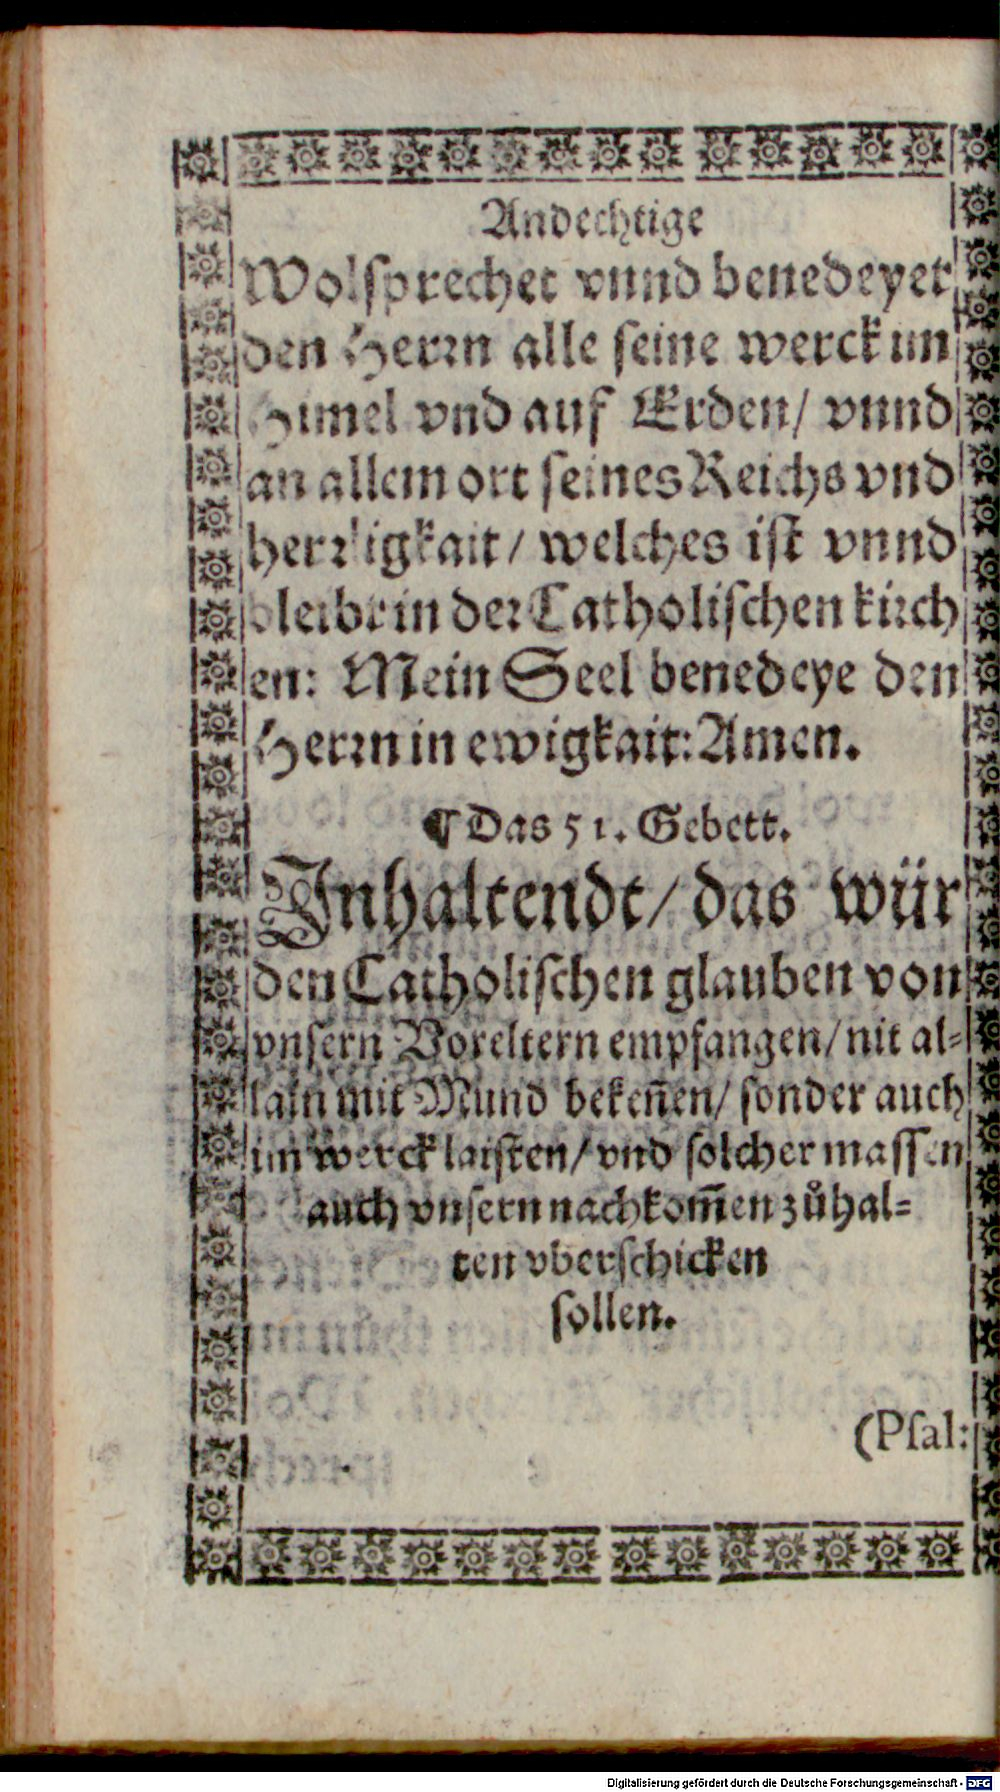 Andechtige
Wolsprechet vnnd benedeyet
den Herrn alle seine werck im
Himel vnd auf Erden/ vnnd
an allem ort seines Reichs vnd
herrligkait/ welches ist vnnd
bleibt in der Catholischen kirch
en: Mein Seel benedeye den
Herrn in ewigkait: Amen.
¶ Das 51. Gebett.
Inhaltendt/ das wür
den Catholischen glauben von
vnsern Voreltern empfangen/ nit al⸗
lain mit Mund bekeñen/ sonder auch
im werck laisten/ vnd solcher massen
auch vnsern nachkom̃en zůhal⸗
ten vberschicken
sollen.
(Psal:
Digitalisierung gefördert durch die Deutsche Forschungsgemeinschaft - DFG